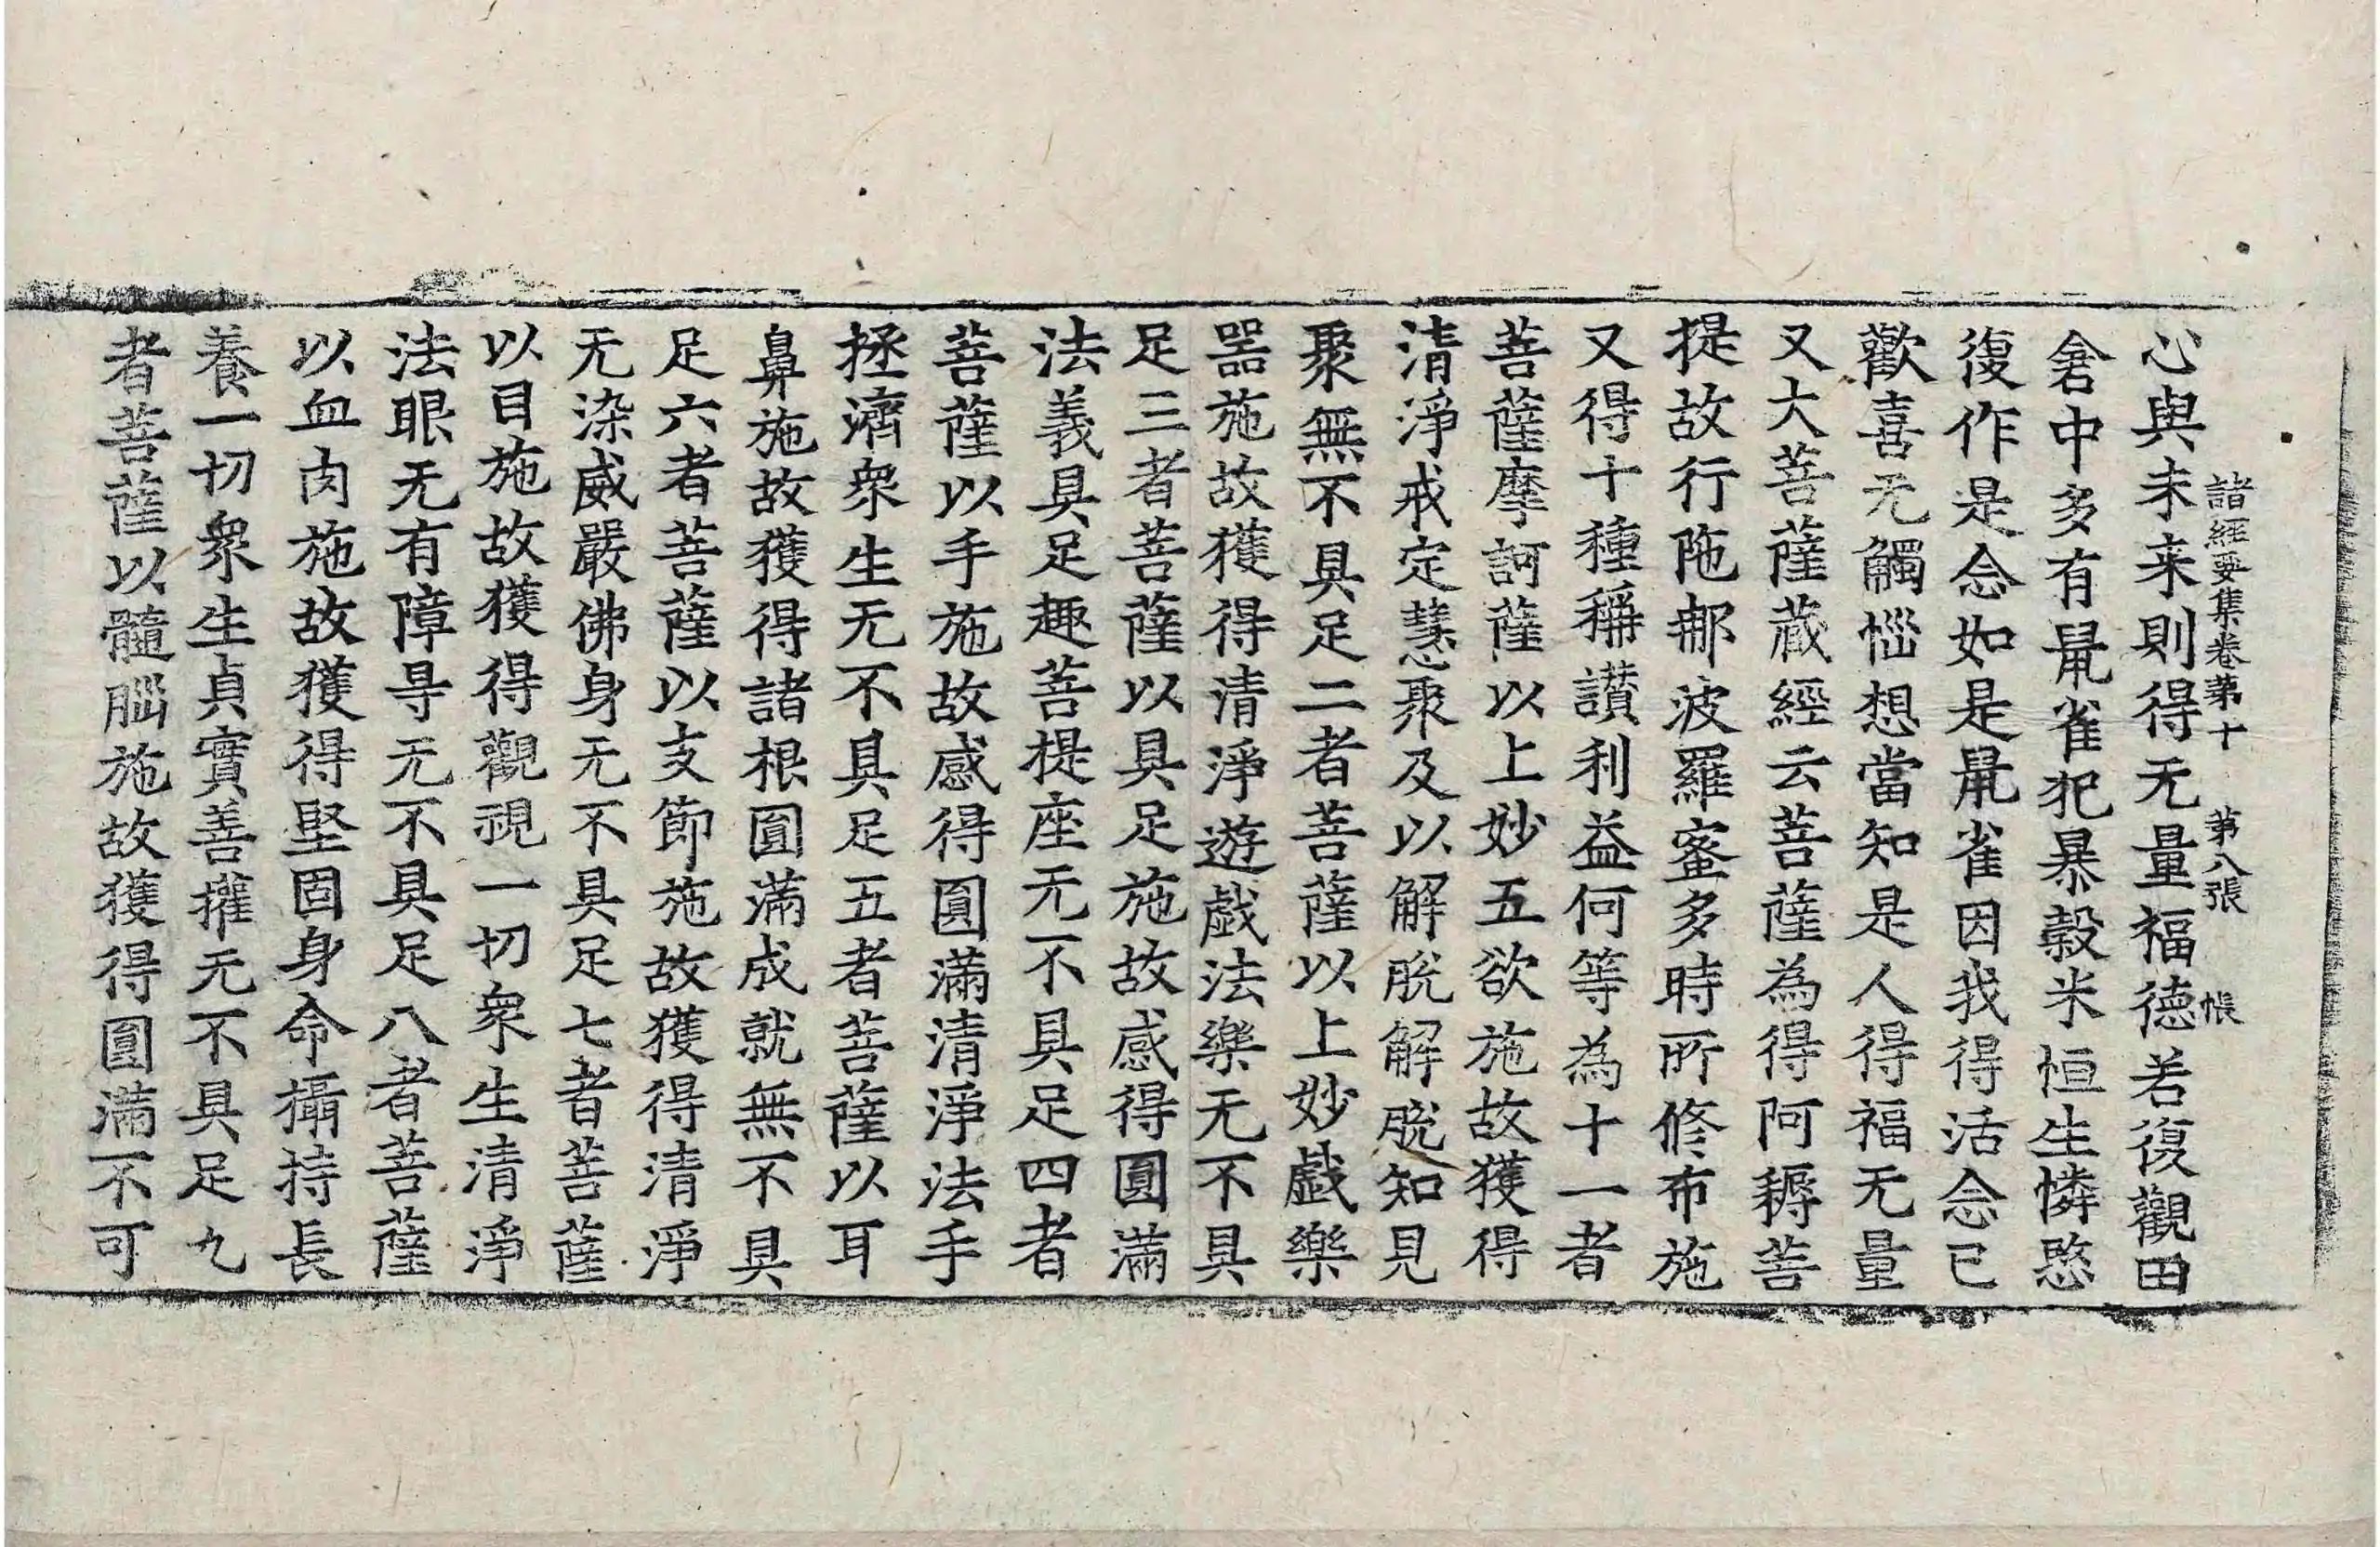 諸經要集卷第十 第八張 帳
心與未来則得无量福德若復觀田
舍中多有鼠雀犯暴穀米恒生憐愍
復作是念如是鼠雀因我得活念已
歡喜无觸惱想當知是人得福无量
又大菩薩藏經云菩薩為得阿耨菩
提故行陁那波羅蜜多時所修布施
又得十種稱讃利益何等為十一者
菩薩摩訶薩以上妙五欲施故獲得
清淨戒定慧聚及以解脫解脫知見
聚無不具足二者菩薩以上妙戲樂
器施故獲得清淨遊戲法樂无不具
足三者菩薩以具足施故感得圓滿
法義具足趣菩提座无不具足四者
菩薩以手施故感得圓滿清淨法手
拯濟衆生无不具足五者菩薩以耳
鼻施故獲得諸根圓滿成就無不具
足六者菩薩以支節施故獲得清淨
无染威嚴佛身无不具足七者菩薩
以目施故獲得觀視一切衆生清淨
法眼无有障㝵无不具足八者菩薩
以血肉施故獲得堅固身命攝持長
養一切衆生貞實善攉无不具足九
者菩薩以髓腦施故獲得圓滿不可